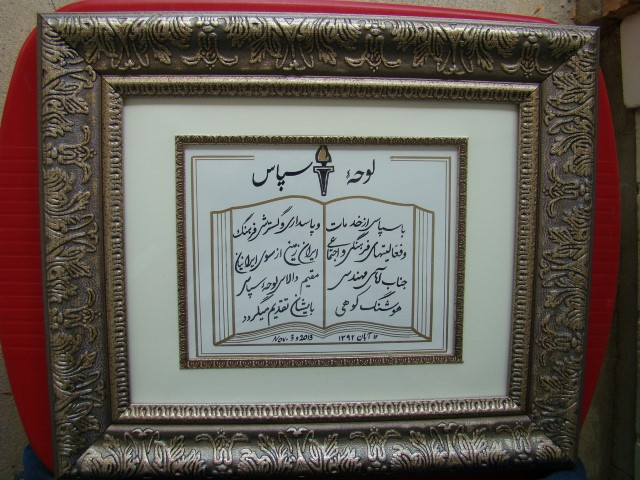 لوحهٔ سپاس
با سپاس از خدمات
و فعالیتهای فرهنگی و اجتماعی
جناب آقای مهندس
هوشنگ گوهی
و پاسداری و گسترش فرهنگ
ایران زمین از سوی ایرانیان
مقیم دالاس لوحهٔ سپاس
بایشان تقدیم میگردد
۱۲ آبان ۱۳۹۲
Nov. 3 2013